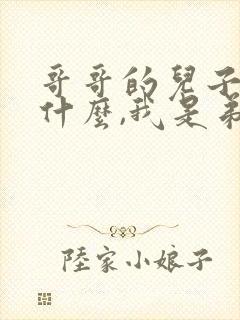 哥哥的兒子
什麼,我是弟
陸家小娘子